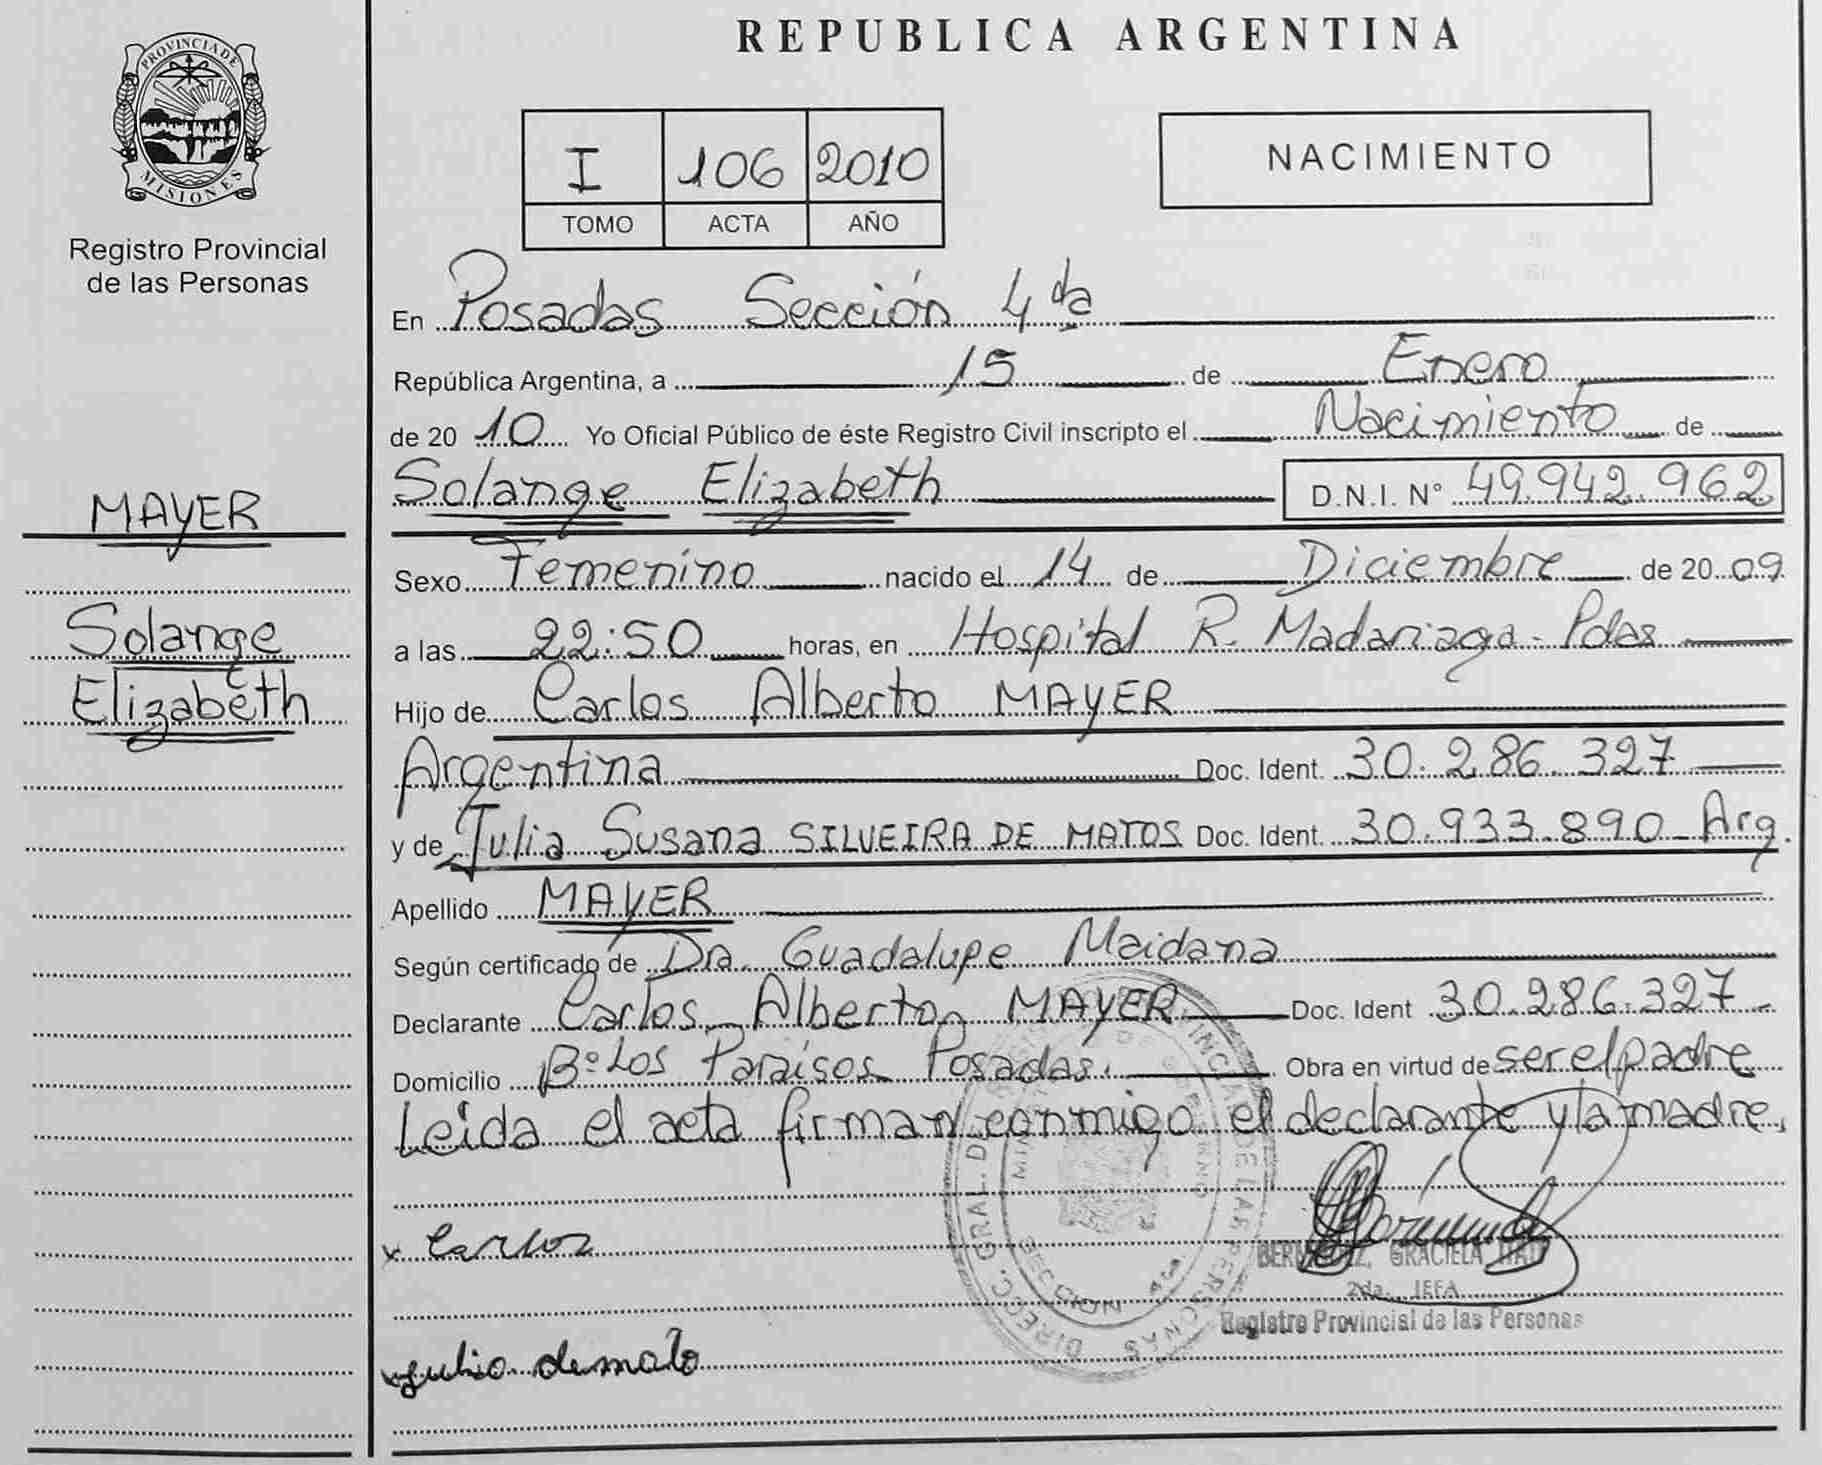 PROVINCIA DE
MISIONES
Registro Provincial
de las Personas
MAYER
Solange
Elizabeth
REPUBLICA ARGENTINA
I 106 2010
TOMO ACTA AÑO
NACIMIENTO
En Posadas Sección 4da
República Argentina, a 15 de Enero
de 2010 Yo Oficial Público de éste Registro Civil inscripto el Nacimiento de
Solange Elizabeth D.N.I. N° 49.942.962
Sexo Femenino nacido el 14 de Diciembre de 2009
a las 22:50 horas, en Hospital R. Madariaga - Pdas
Hijo de Carlos Alberto MAYER
Argentina Doc. Ident. 30.286.327
y de Julia Susana SILVEIRA DE MATOS Doc. Ident. 30.933.890 - Arg.
Apellido MAYER
Según certificado de Dra. Guadalupe Maidana
Declarante Carlos Alberto MAYER Doc. Ident 30.286.327
Domicilio B° Los Paraisos Posadas. Obra en virtud de ser el padre
Leida el acta firman conmigo el declarante y la madre.
x Carlos
GRACIELA
2da. JEFA
Registro Provincial de las Personas
DIRECC. GRAL. DE PROVINCIAL DE LAS PERSONAS
SECCION 4da
x julio demato